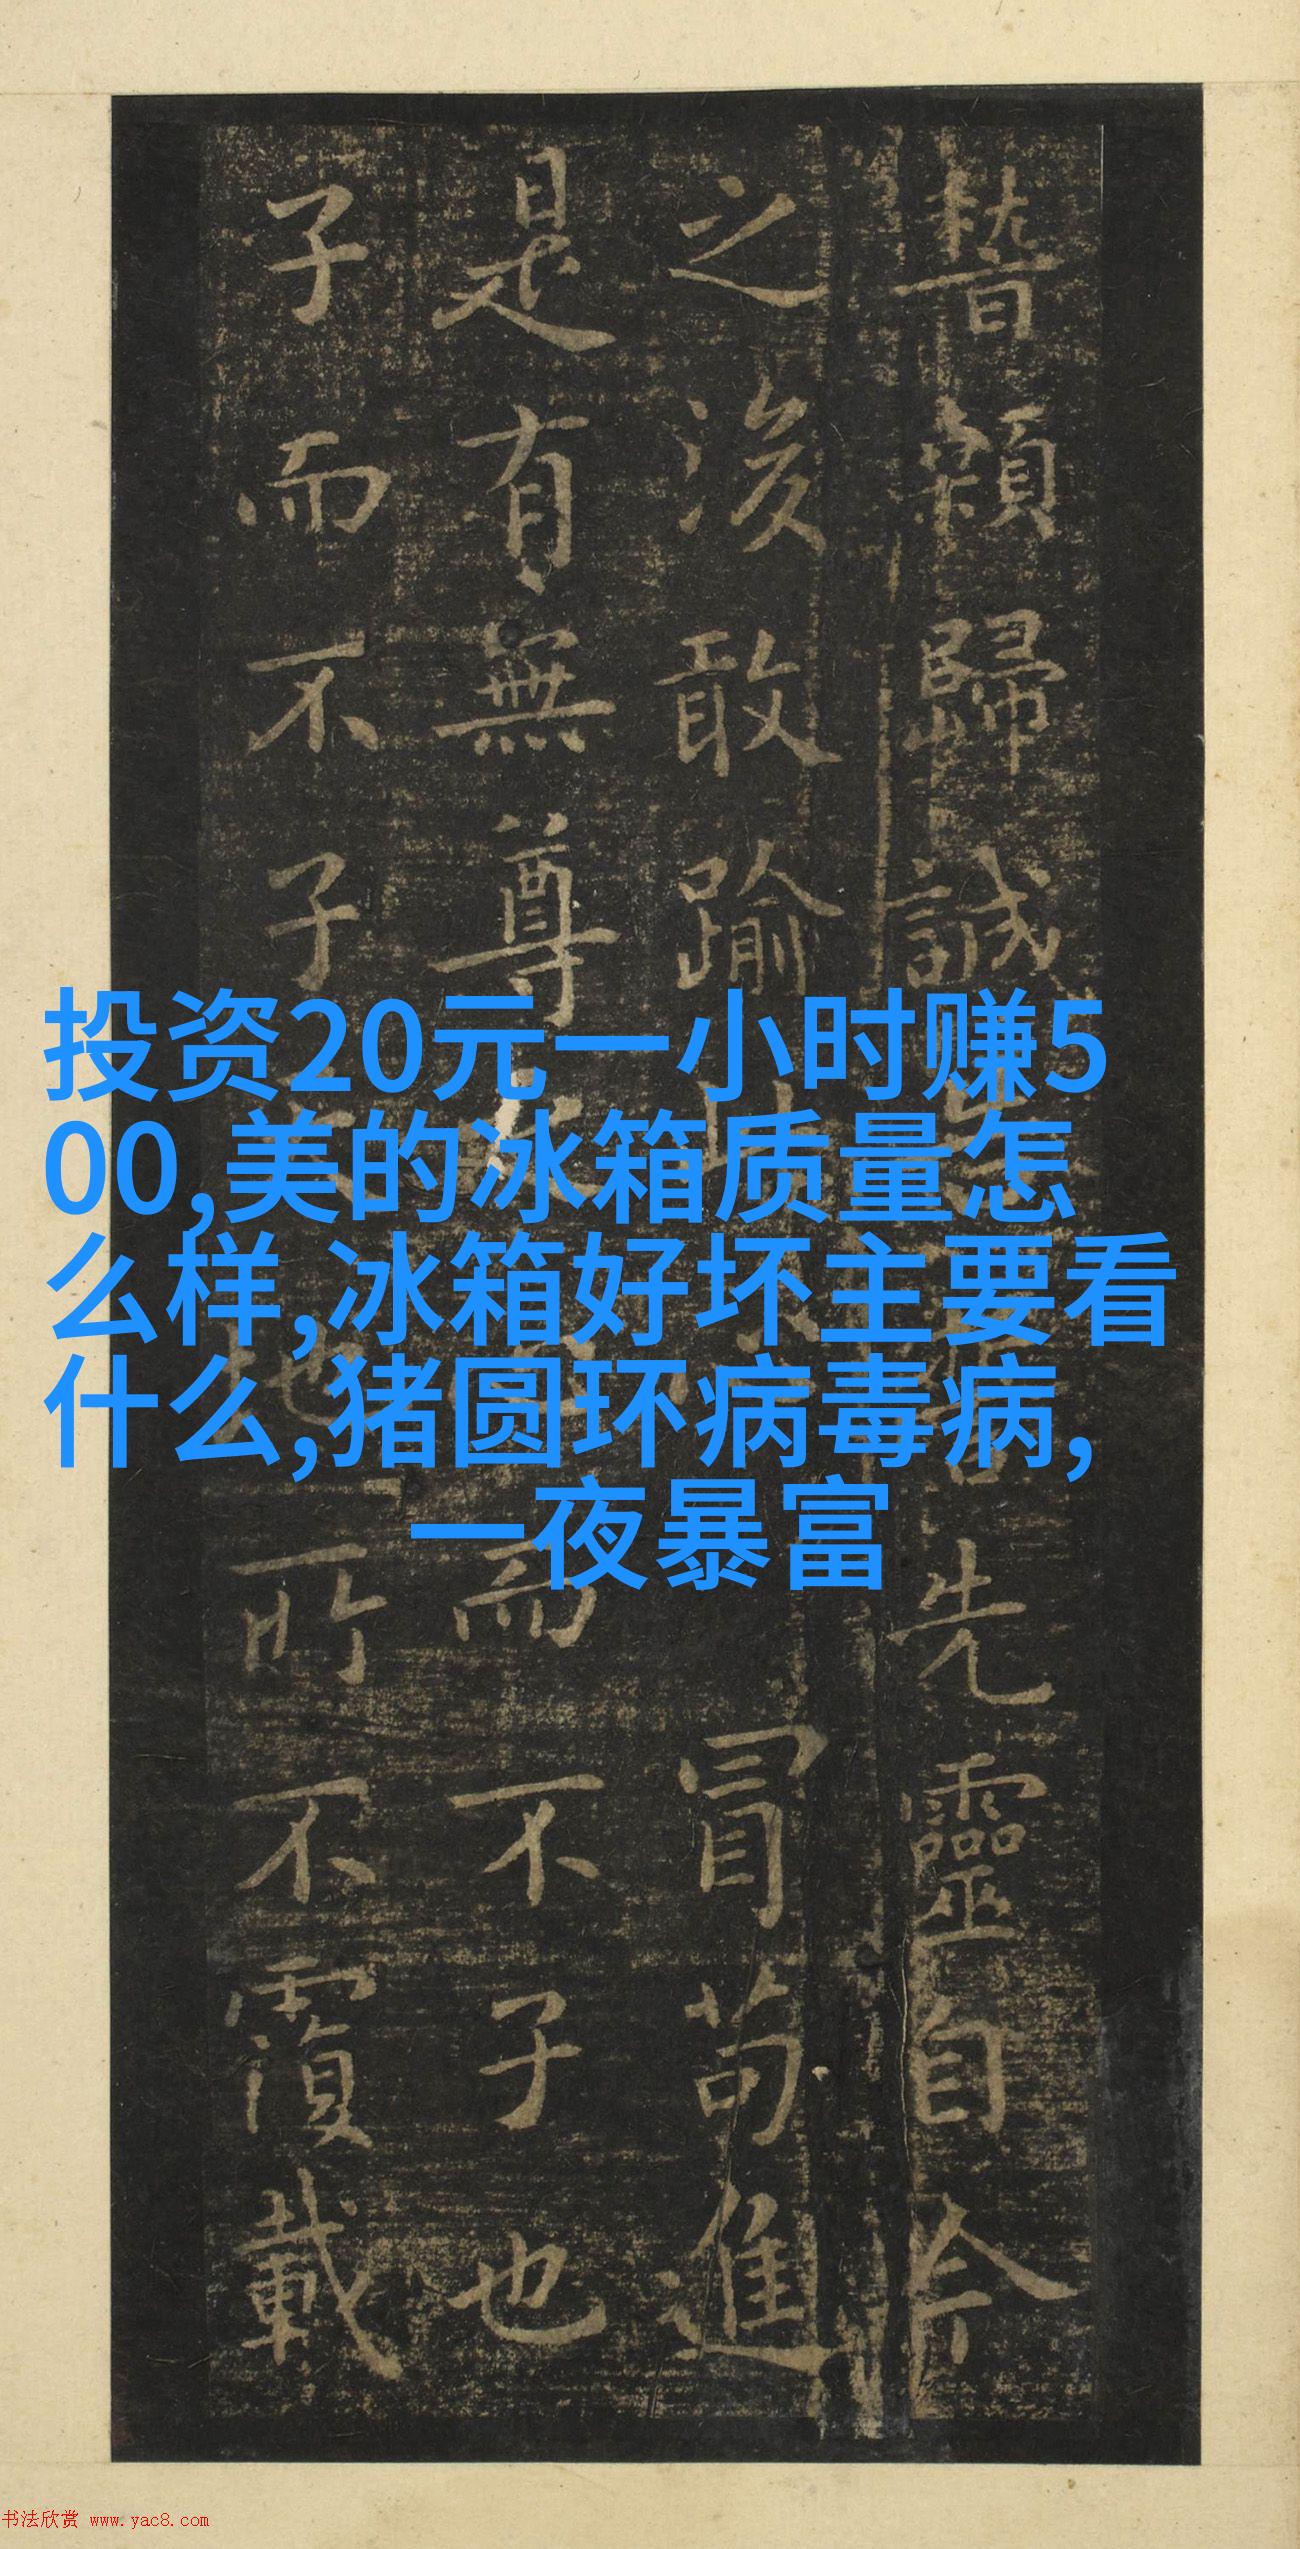 顙歸誠先靈自今
之後敢踰此冒苟進
是有無尊而不子也
子而不子地所不覆載
投资20元一小时赚5
00,美的冰箱质量怎
么样,冰箱好坏主要看
什么,猪圆环病毒病,
一夜暴富
书法欣赏 www.yac8.com